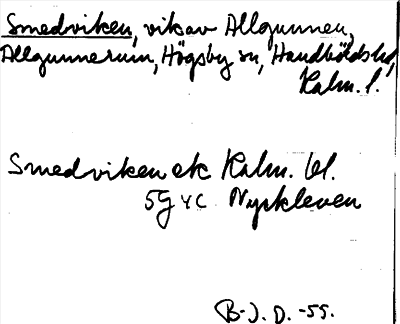 Smedviken, vik av Allgunnen,
Allgunnerum, Högsby sn, Handbörds hd,
Kalm. l.
Smedviken ek Kalm. bl.
5G 4C Nyrkleven
B-J. D. -55.